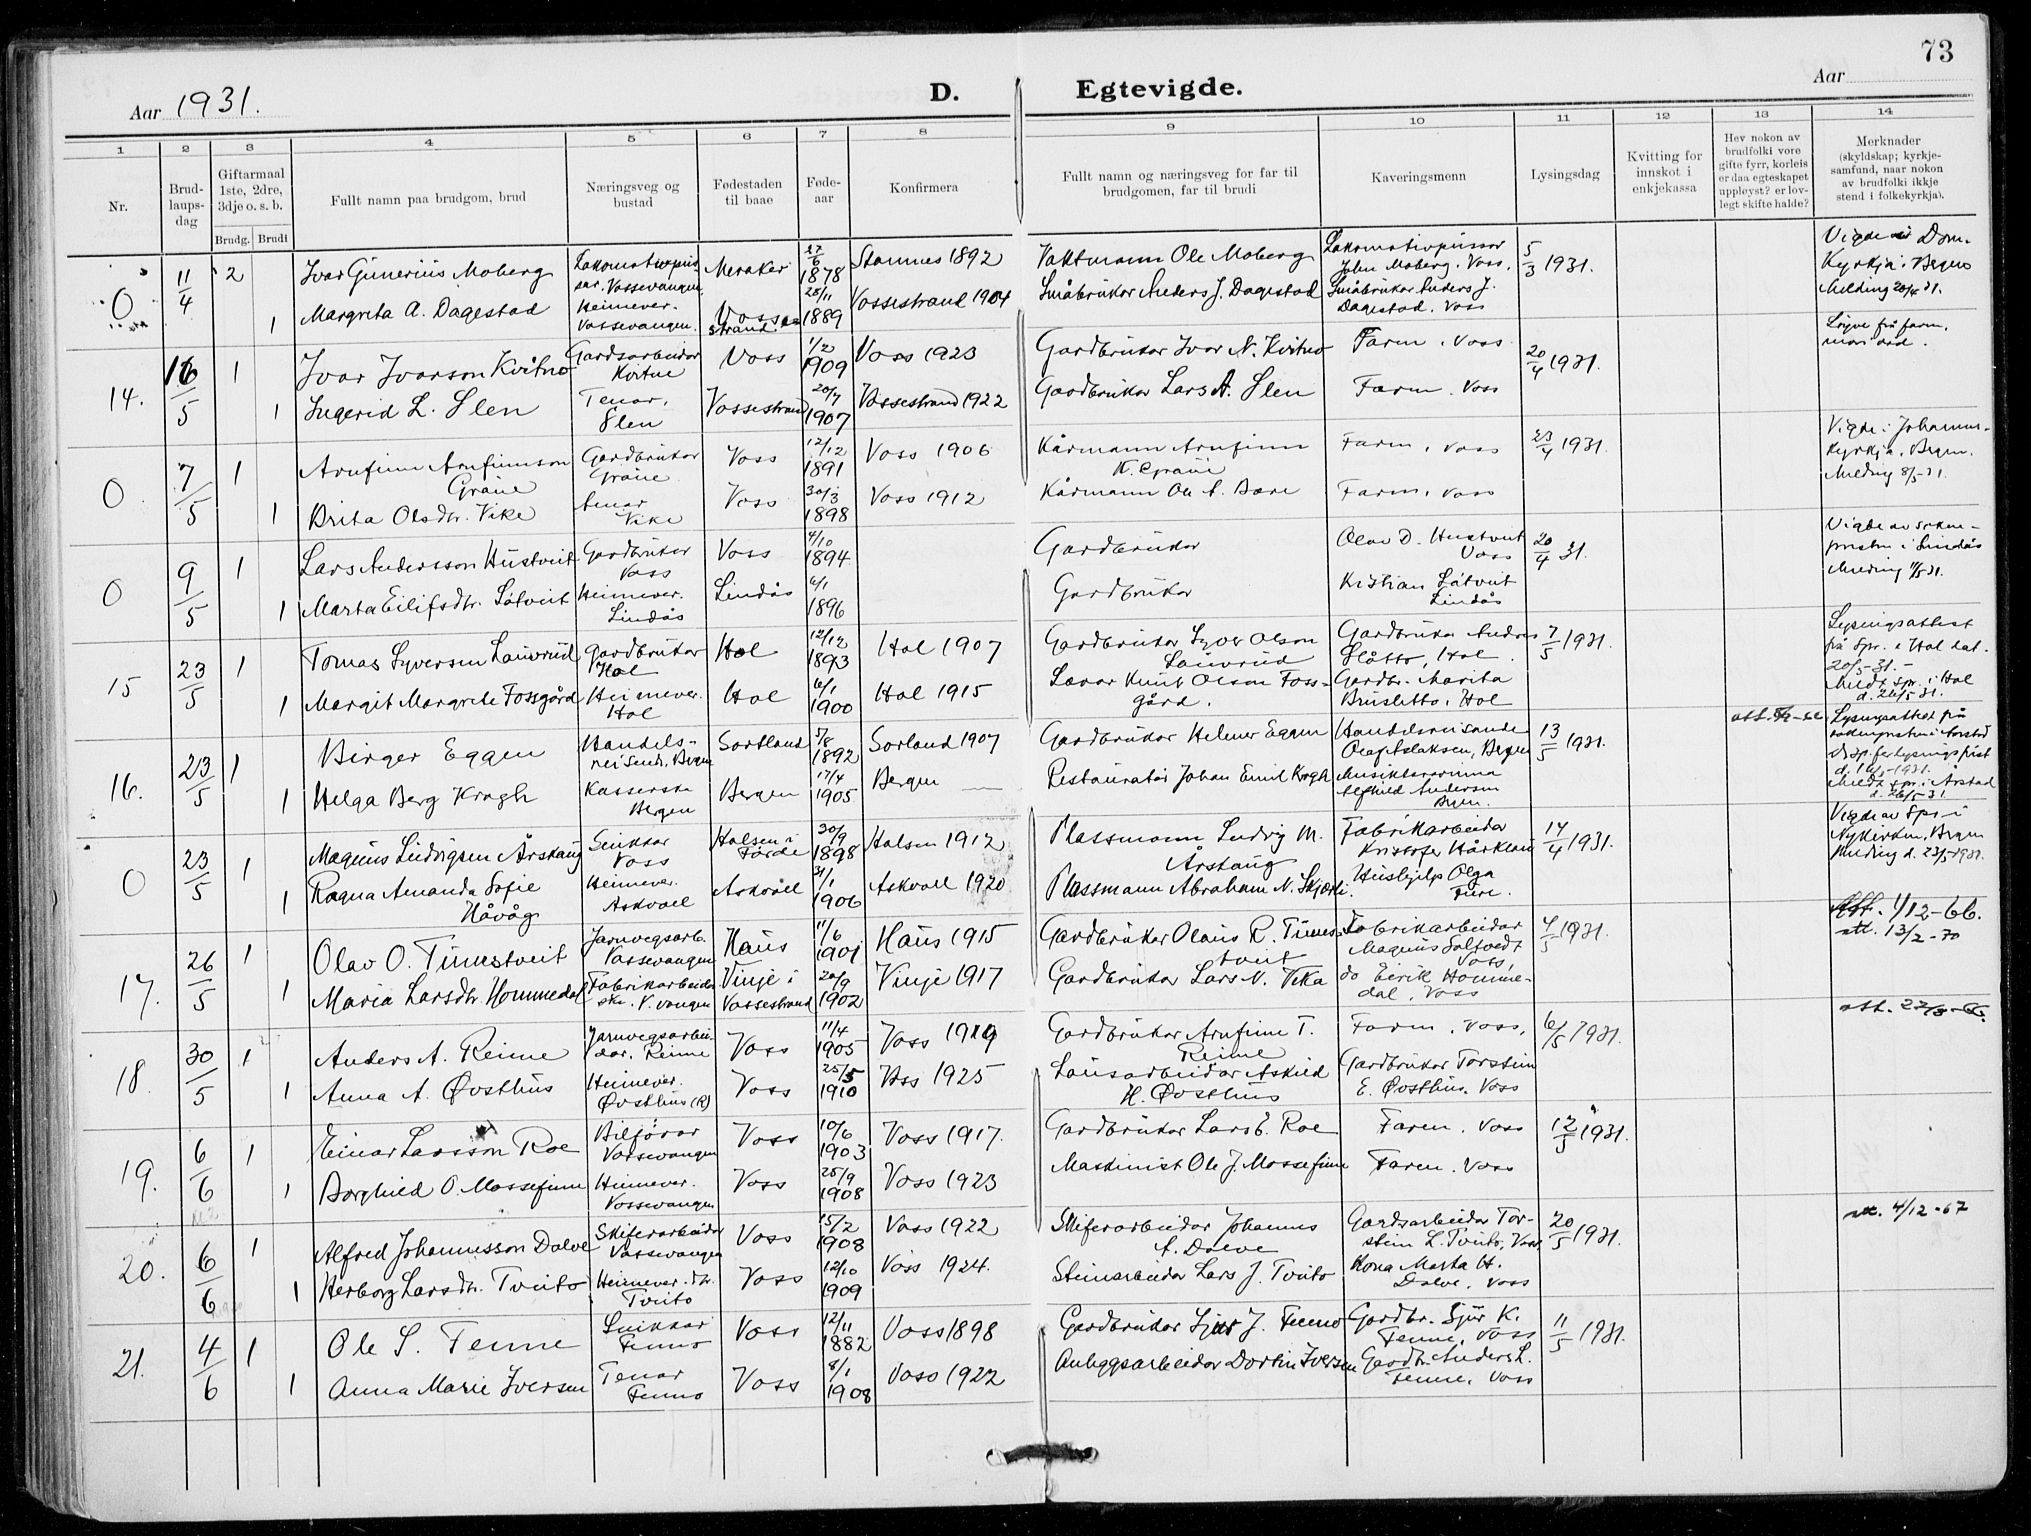 73
Aar 1931.
D. Egtevigde.
Aar
1 2 3 4 5 6 7 8 9 10 11 12 13 14
Nr.
Brud-
laups-
dag
Giftarmaal
1ste, 2dre,
3dje o. s. b.
Brudg. Brudi
Fullt namn paa brudgom, brud
Næringsveg og
bustad
Fødestaden
til baae
Føde-
aar
Konfirmera
Fullt namn og næringsveg for far til
brudgomen, far til brudi
Kaveringsmenn
Lysingsdag
Kvitting for
innskot i
enkjekassa
Hev nokon av
brudfolki vore
gifte fyrr, korleis
er daa egteskapet
uppløyst? er lov-
legt skifte halde?
Merknader
(skyldskap; kyrkje-
samfund, naar nokon
av brudfolki ikkje
stend i folkekyrkja).
0 11/4 2 Ivar Gunerius Moberg Vossevangen Meraker 27/6 1878 Stamnes 1892 Vaktmann Ole Moberg Lokomotivpussar John Moberg, Voss. 5/3 1931.
1 Margreta A. Dagestad Heimever. Vossevangen. Vossestrand 28/11 1889 Vossestrand 1904 Småbrukar Anders J. Dagestad Småbrukar Anders J. Dagestad, Voss
Vigde i Dom-
kyrkja i Bergen
Melding 20/4 31.
14. 16/5 1 Ivar Ivarson Kvitno Gardsarbeidar Kvitne Voss 1/2 1909 Voss 1923 Gardbrukar Ivar N. Kvitno Faren, Voss 20/4 1931.
1 Ingerid L. Slen Tenar, Slen Vossestrand 20/7 1907 Vossestrand 1922 Gardbrukar Lars A. Slen Faren, Voss
0 7/5 1 Arnfinn Arnfinnson Graue Gardbrukar Graue Voss 12/12 1891 Voss 1906 Kårmann Arnfinn K. Graue Faren, Voss 23/4 1931.
1 Brita Olsdtr. Vike tenar Vike Voss 30/3 1898 Voss 1912 Kårmann Ole A. Faren, Voss
Vigde i Johannes-
kyrkja, Bergen.
Melding 8/5-31.
0 9/5 1 Lars Andersson Hustveit Gardbrukar Voss Voss 4/10 1894 Gardbrukar Olav D. Hustveit Voss 20/4 31.
1 Marta Eilifsdtr. Låtveit Heimever. Lindås Lindås 6/1 1896 Gardbrukar Kristian Låtveit Lindås
Vigde av sokne-
presten i Lindås
Melding 11/5 31.
15 23/5 1 Tomas Syversen Lauvrud Gardbrukar Hol Hol 12/12 1893 Hol 1907 Gardbrukar Syver Olson Lauvrud Gardbrukar Andres Slåtto, Hol. 7/5 1931.
1 Margit Margrete Fossgård Heimever. Hol Hol 6/1 1900 Hol 1915 Lærar Knut Olson Fossgård. Gardbr. Marita Brusletto, Hol
Lysingsattest
frå Spr. i Hol dat.
20/5-31.-
Meldt spr. i Hol
d. 26/5 31.
16. 23/5 1 Birger Eggen Handelsreisende, Bergen Sortland 5/8 1892 Sorland 1907 Gardbrukar Helmer Eggen Handelsreisande Olaf Aslaksen, Bergen 13/5 1931.
1 Helga Berg Krogh Kasserske Bergen Bergen 17/4 1905 Bergen — Restauratør Johan Emil Krogh Musiklærerinna Andersen Bergen.
Lysingsattest frå
soknepresten i Årstad
Meldt spr. i Årstad
d. 26/5-31.
0 23/5 1 Magnus Ludvigsen Årskaug Snikkar Voss Holsen i Førde 30/9 1898 Holsen 1912 Plassmann Ludvig M. Årskaug Fabrikkarbeidar Kristofer Hårklau 14/4 1931.
1 Ragna Amanda Sofie Håvåg Heimever. Askvoll Askvoll 31/1 1906 Askvoll 1920 Plassmann Abraham N. Hushjelp Olga Fure.
Vigde av Spr. i
Nykirken, Bergen
Melding d. 23/5 1931.
17. 26/5 1 Olav O. Tunestveit Jarnvegsarb. Vossevangen Haus 11/6 1901 Haus 1915 Gardbrukar Olaus R. Tunestveit Fabrikarbeidar Magnus Saltvedt Voss, 4/5 1931.
1 Maria Larsdtr. Hommedal Fabrikarbeiderske. V. vangen Vinje i Vossestrand 20/9 1902 Vinje 1917 Gardbrukar Lars N. Vika do Eirik Hommedal, Voss
Att. 1/12-66.
att. 13/2-70
18 30/5 1 Anders A. Reime Jarnvegsarbeidar, Reime Voss 11/4 1905 Voss 1919 Gardbrukar Arnfinn T. Reime Faren, Voss, 6/5 1931.
1 Anna A. Øvsthus Heimever. Øvsthus (R) Voss 25/5 1910 Voss 1925 Lausarbeidar Askild H. Øvsthus Gardbrukar Torstein E. Øvsthus. Voss
19. 6/6 1 Einar Larsson Roe Bilførar Vossevangen Voss 10/6 1903 Voss 1917. Gardbrukar Lars E. Roe Faren, Voss 12/5 1931.
1 Borghild O. Mossefinn Heimever. Vossevangen Voss 25/9 1908 Voss 1923 Maskinist Ole J. Mossefinn Faren. Voss
20. 6/6 1 Alfred Johannesson Dalve Skiferarbeidar Vossevangen Voss 15/2 1908 Voss 1922 Skiferarbeidar Johannes A. Dalve Gardsarbeidar Torstein L. Tvito, Voss 20/5 1931.
1 Herborg Larsdtr. Tvito Heimever. Tvito Voss 12/10 1909 Voss 1924. Steinarbeidar Lars J. Tvito Kona Marta H. Dalve, Voss
att. 4/12-67
21. 4/6 1 Ole S. Fenne Snikkar Fenno Voss 12/11 1882 Voss 1898 Gardbrukar Sjur J. Fenno Gardbr. Sjur K. Fenne, Voss 11/5 1931.
1 Anna Marie Iversen Tenar Fenno Voss 8/1 1908 Voss 1922 Anleggsarbeidar Iversen Gardbr. Anders L. Fenne, Voss